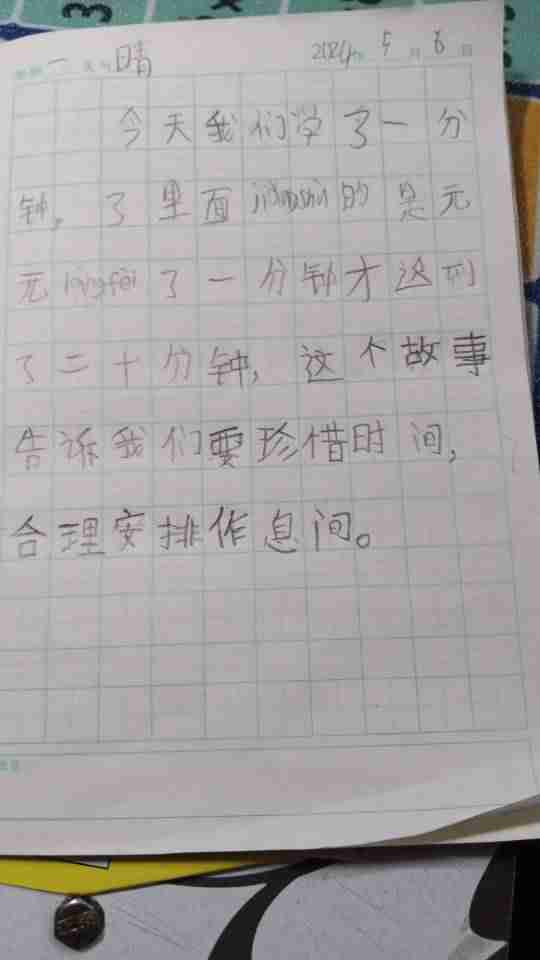 一 晴 2024年5月6日
今天我们学了一分
钟，了里面jiǎngshù的是元
元làngfèi了一分钟才迟到
了二十分钟，这个故事
告诉我们要珍借时间，
合理安排作息间。